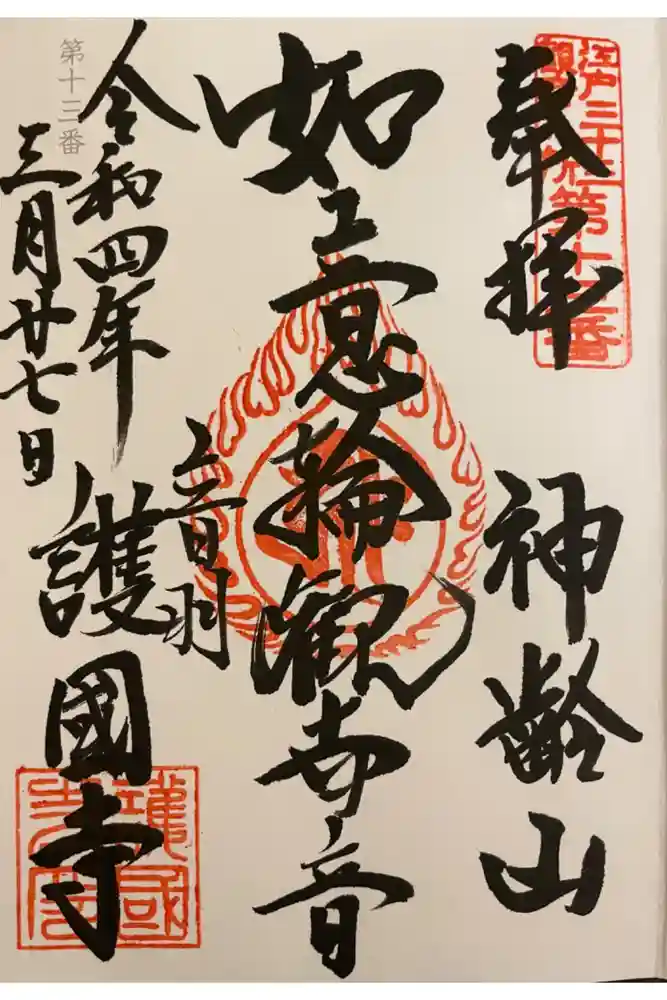 奉拝
江戸三十三
第十三番
神齢山
如意輪観世音
音羽
護國寺
令和四年
三月廿七日
第十三番